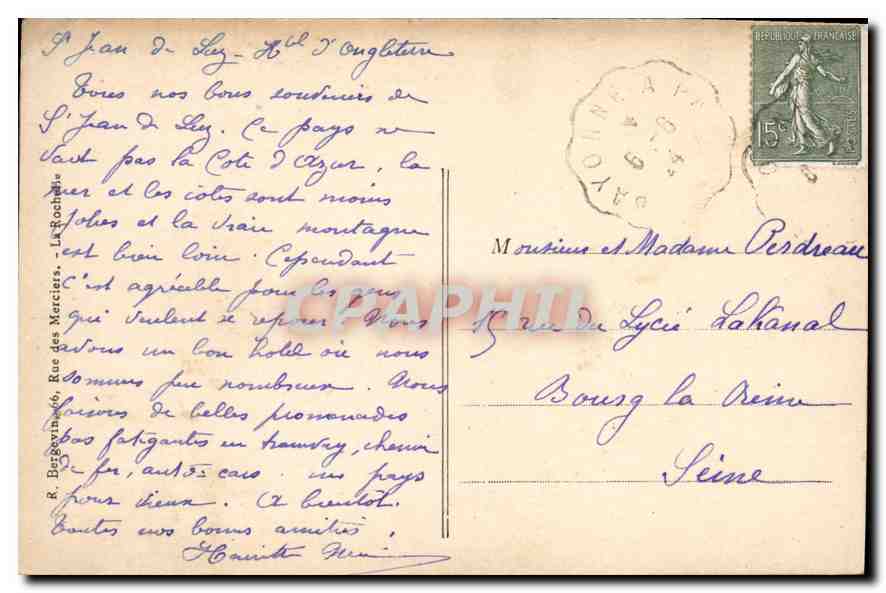 St Jean de Luz - Hôtel d'Angleterre
Tous nos bons souvenirs de
St Jean de Luz. Ce pays ne
vaut pas la Cote d'Azur, la
mer et les côtes sont moins
jolies et la vraie montagne
est bien loin. Cependant
c'est agréable pour les gens
qui veulent se reposer. Nous
avons un bon hotel où nous
sommes peu nombreux. Nous
faisons de belles promenades
pas fatigantes en tramway, chemin
de fer, autos-cars. un pays
pour vieux. A bientôt.
Toutes nos bonnes amitiés,
R. Bergevin, 66, Rue des Merciers. - La Rochelle
REPUBLIQUE FRANÇAISE
15c
POSTES
BAYONNE A
Monsieur et Madame Perdreau
15 rue du Lycée Lakanal
Bourg la Reine
Seine
CPAPHIL